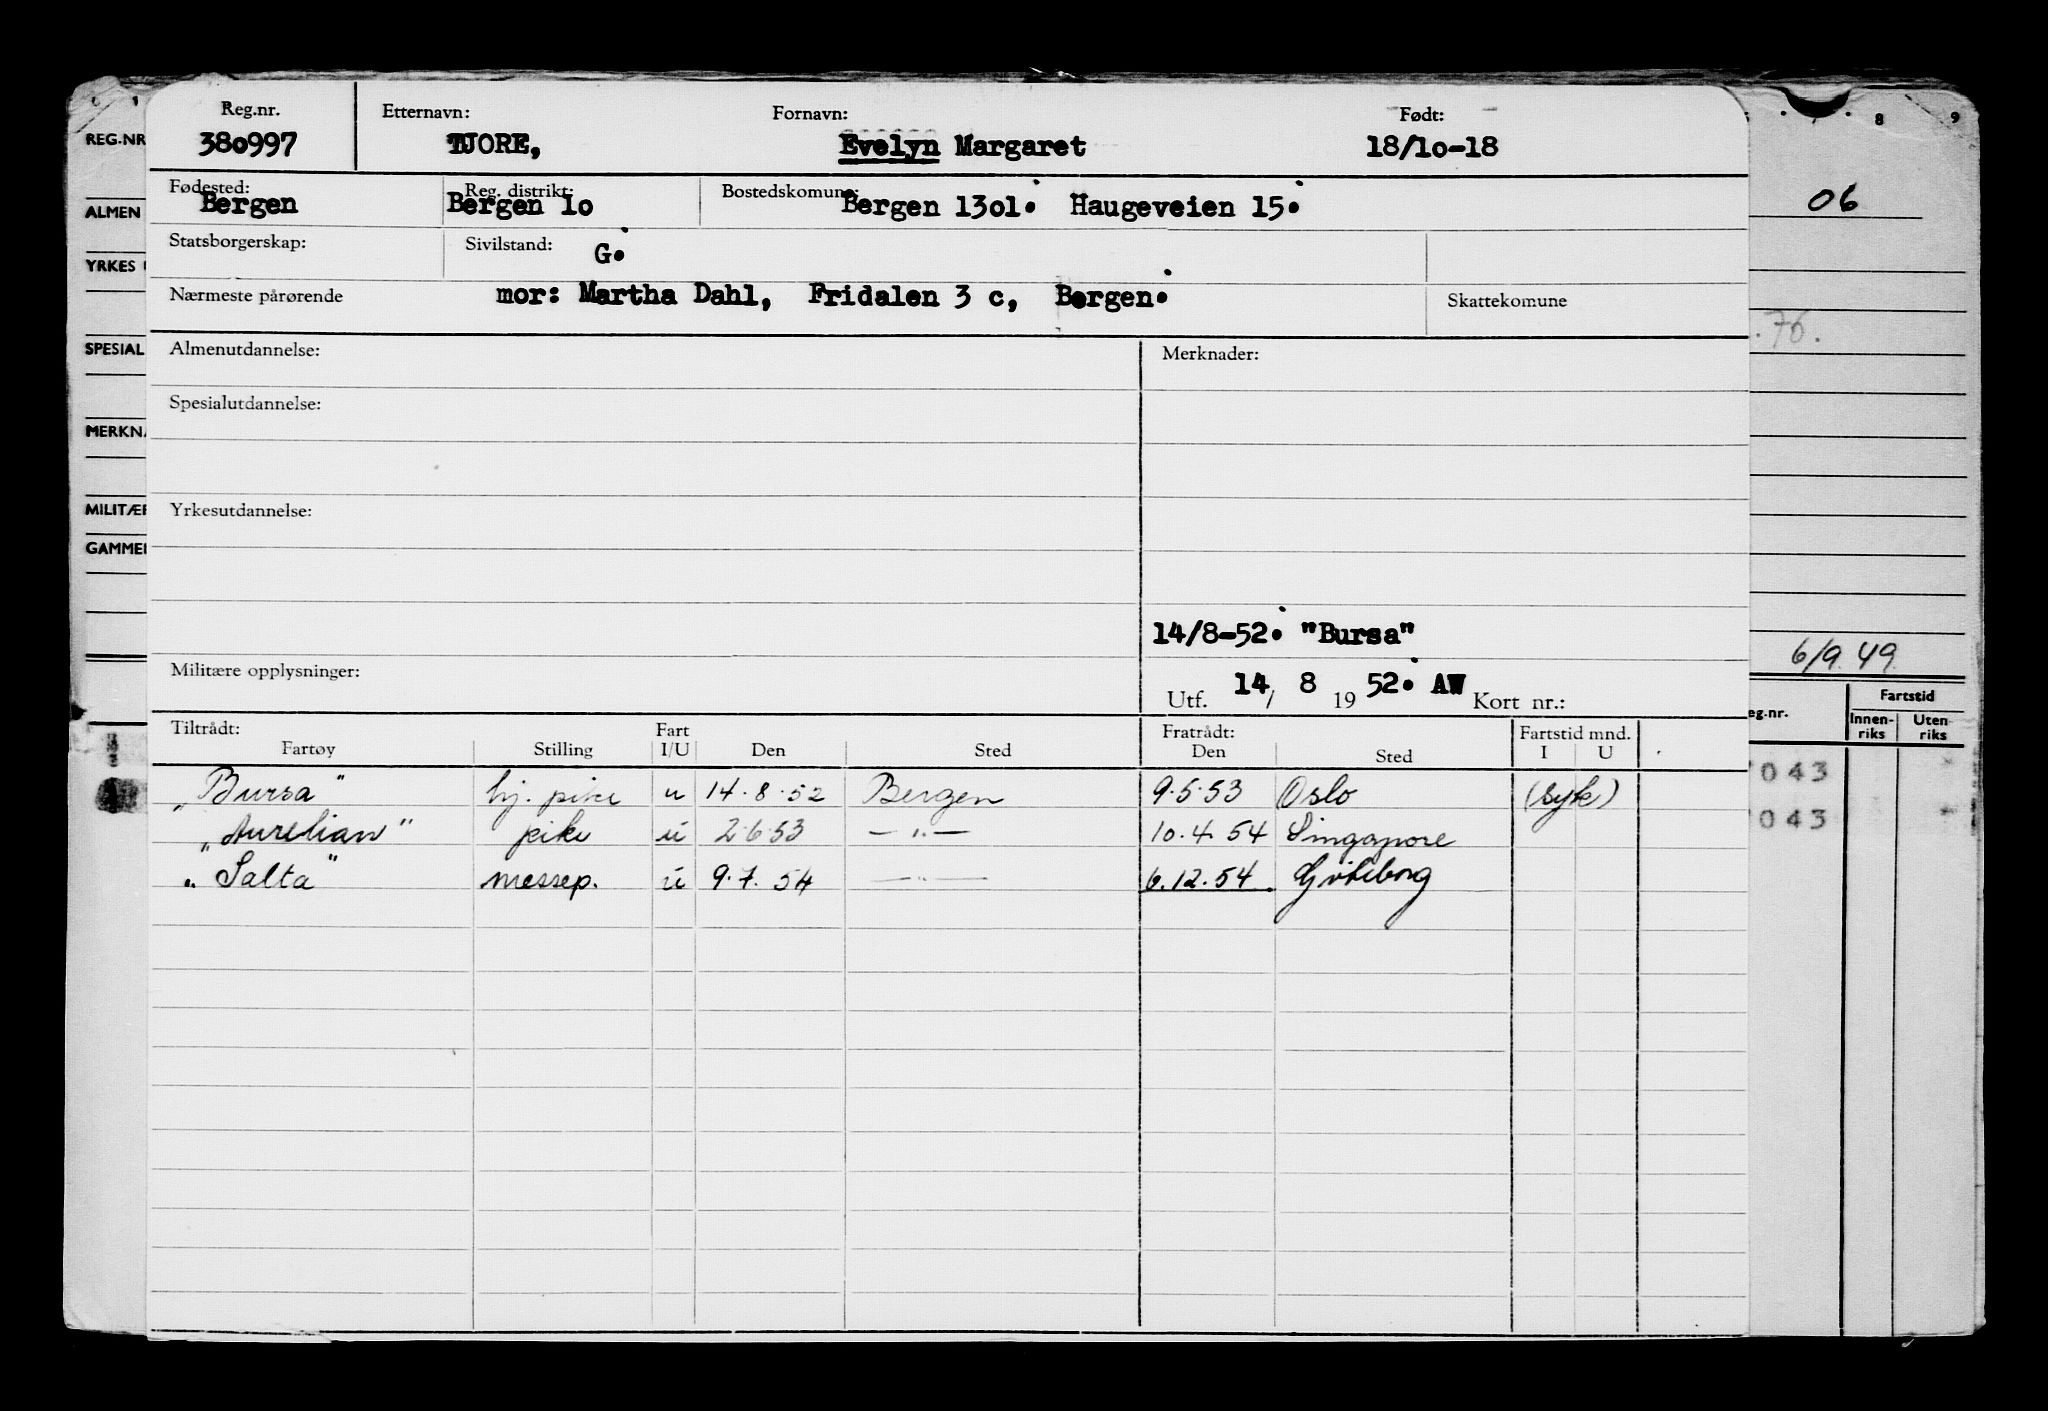 Reg.nr. Etternavn: Fornavn: Født:
380997 TJORE, Evelyn Margaret 18/10-18
Fødested: Reg. distrikt: Bostedskomune:
Bergen Bergen 10 Bergen 1301. Haugeveien 15.
Statsborgerskap: Sivilstand: G.
Nærmeste pårørende mor: Martha Dahl, Fridalen 3 c, Bergen. Skattekomune
Almenutdannelse: Merknader:
Spesialutdannelse:
Yrkesutdannelse:
14/8-52. "Bursa"
Militære opplysninger: Utf. 14/ 8 19 52. AW Kort nr.:
Tiltrådt: Fart Fratrådt: Fartstid mnd.
Fartøy Stilling I/U Den Sted Den Sted I U
"Bursa" hj. pike u 14.8.52 Bergen 9.5.53 Oslo (syk)
"Aurelian" pike u 2.6.53 — " — 10.4.54 Singapore
"Salta" messep. u 9.7.54 — " — 6.12.54 Gøteborg
REG.NR
ALMEN
YRKES
SPESIAL
MERKNA
MILITÆR
GAMMEL
8 9
06
.76.
6/9.49
eg.nr. Fartstid
Innenriks Utenriks
043
043